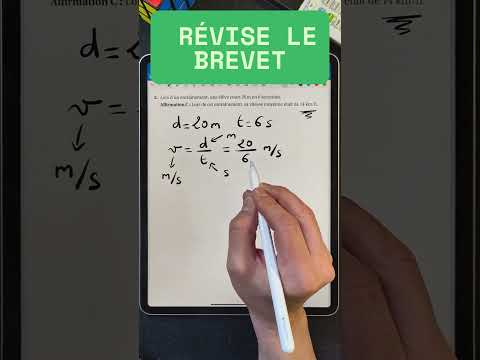 RÉVISE LE
BREVET
3. Lors d'un entraînement, une élève court 20 m en 6 secondes.
Affirmation C : Lors de cet entraînement, sa vitesse moyenne était de 14 km/h.
d=20m t=6s
v = d/t = 20/6 m/s
m
s
m/s